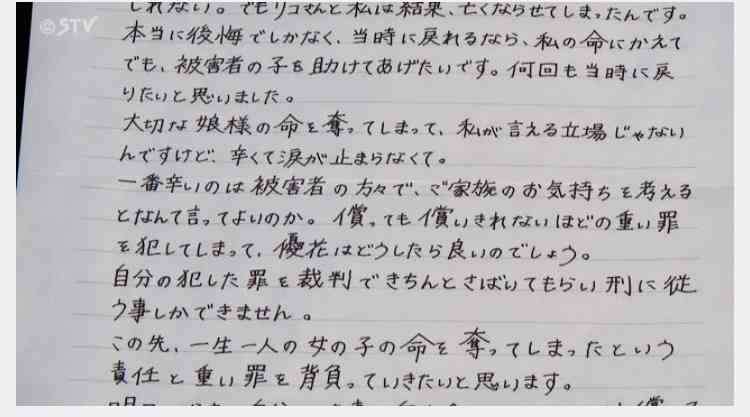 ©STV
しれない。でもリコさんと私は結果、亡くならせてしまったんです。
本当に後悔でしかなく、当時に戻れるなら、私の命にかえて
でも、被害者の子を助けてあげたいです。何回も当時に戻
りたいと思いました。
大切な娘様の命を奪ってしまって、私が言える立場じゃない
んですけど、辛くて涙が止まらなくて。
一番辛いのは被害者の方々で、ご家族のお気持ちを考える
となんて言ってよいのか。償っても償いきれないほどの重い罪
を犯してしまって、優花はどうしたら良いのでしょう。
自分の犯した罪を裁判できちんとさばいてもらい刑に従
う事しかできません。
この先、一生一人の女の子の命を奪ってしまったという
責任と重い罪を背負っていきたいと思います。